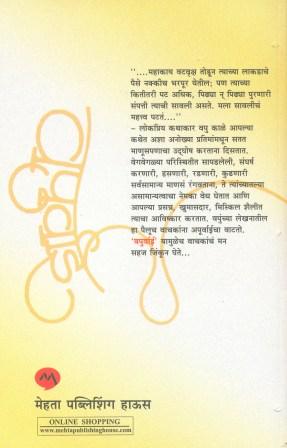 "....महाकाय वटवृक्ष तोडून त्याच्या लाकडाचे
पैसे नक्कीच भरपूर येतील; पण त्याच्या
कितीतरी पट अधिक, पिढ्या न् पिढ्या पुरणारी
संपत्ती त्याची सावली असते. मला सावलीचं
महत्त्व पटतं...."
– लोकप्रिय कथाकार वपु काळे आपल्या
कथेत अशा अनोख्या प्रतिमांमधून सतत
माणूसपणाचा उद्घोष करताना दिसतात.
वेगवेगळ्या परिस्थितीत सापडलेली, संघर्ष
करणारी, हसणारी, रडणारी, कुढणारी
सर्वसामान्य माणसं रंगवताना, ते त्यांच्यातल्या
असामान्यत्वाचा नेमका वेध घेतात आणि
आपल्या प्रसन्न, खुमासदार, मिस्किल शैलीत
त्याचा आविष्कार करतात. वपुंच्या लेखनातील
हा पैलूच वाचकांना अपूर्वाईचा वाटतो.
'वपुर्वाई' यामुळेच वाचकांचं मन
सहज जिंकून घेते...
वपुर्वाई
मेहता पब्लिशिंग हाऊस
ONLINE SHOPPING
www.mehtapublishinghouse.com